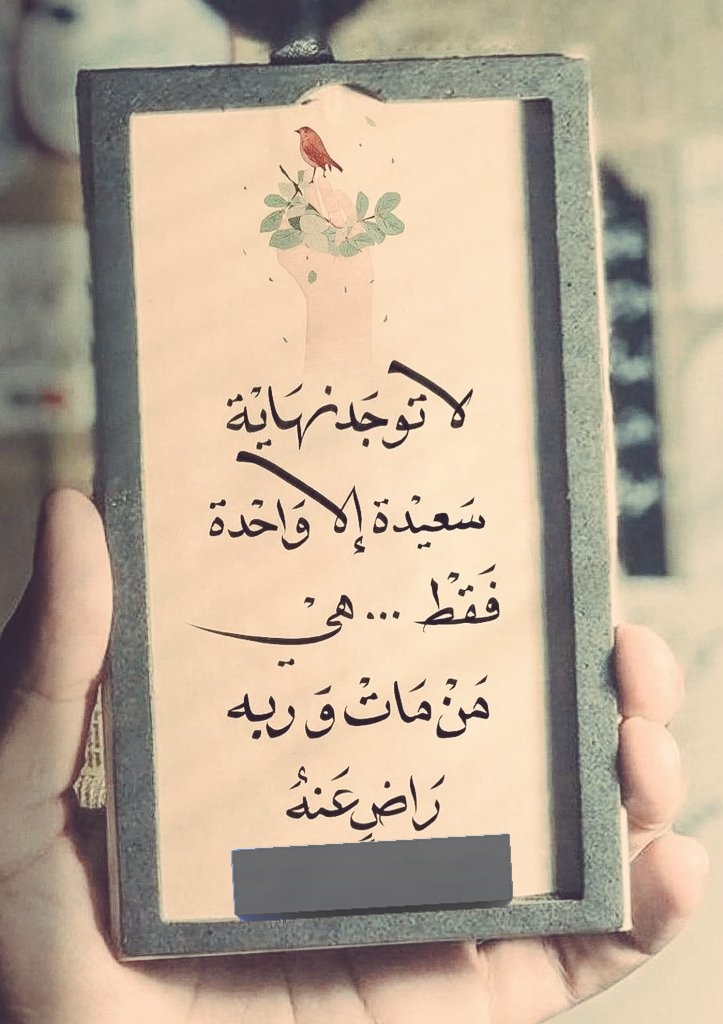 لا توجَد نهَايْة
سَعيْدة إلا وَاحْدة
فَقَطْ ... هيْ
مَنْ مَاتْ وَ ربه
رَاضٍ عَنهُ